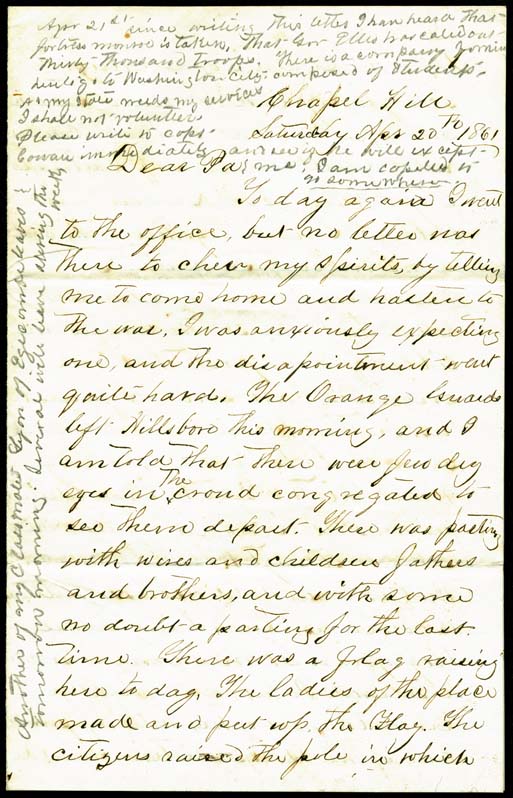 Apr 21st since writing this letter I han heard that
fortress monroe is taken, That Gov Ellis has caled out
thirty thousand troops. There is a company forming
to Washington City composed of Students.
As my state needs my services
I shall not volunteer
Please write to Capt
Cowan immediately and see if he will except
me. I am copeled to
go somewhere
Chapel Hill
Saturday Apr 20th 1861
Dear Pa
To day again I went
to the office, but no letter was
there to cheer my spirits, by telling
me to come home and hasten to
the war, I was anxiously expecting
one, and the disapointment went
quite hard. The Orange Guards
left Hillsboro this morning, and I
am told that there were few dry
eyes in the croud congregated to
see them depart. There was parting
with wives and children fathers
and brothers, and with some
no doubt a parting for the last
time. There was a flag raising
here to day, The ladies of the place
made and put up the Flag. The
citizens raised the pole in which
Another of my classmates Lyon of leaves
tomorrow morning. Several will leave during the week